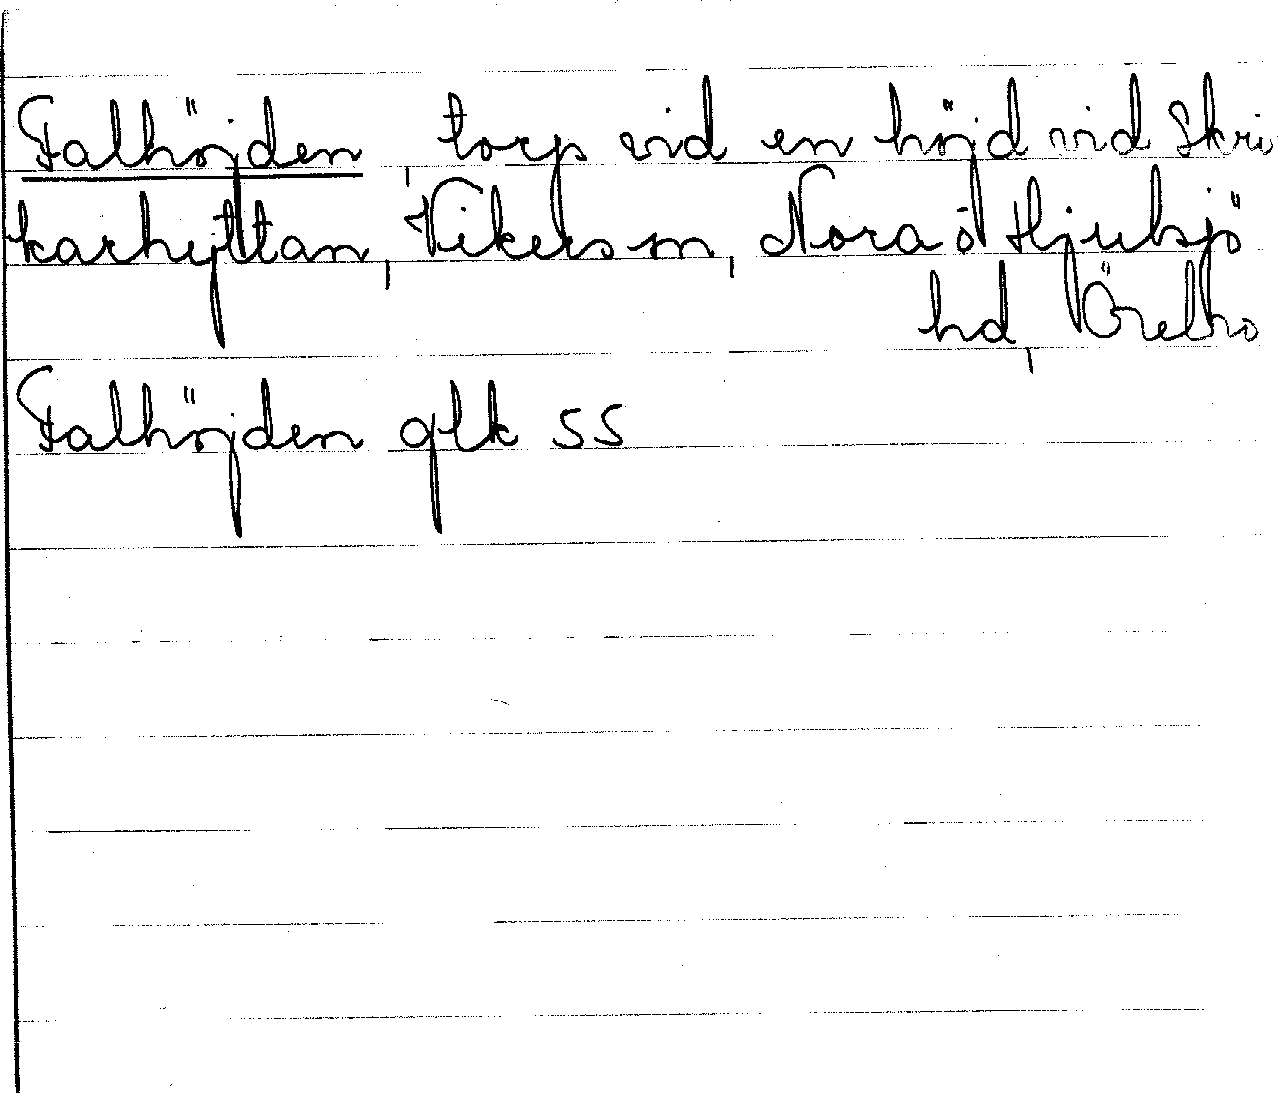 Falhöjden, torp vid en höjd vid Skri
karhyttan, Vikers sn, Nora ö Hjulsjö
hd, Örebro
Falhöjden glk 55